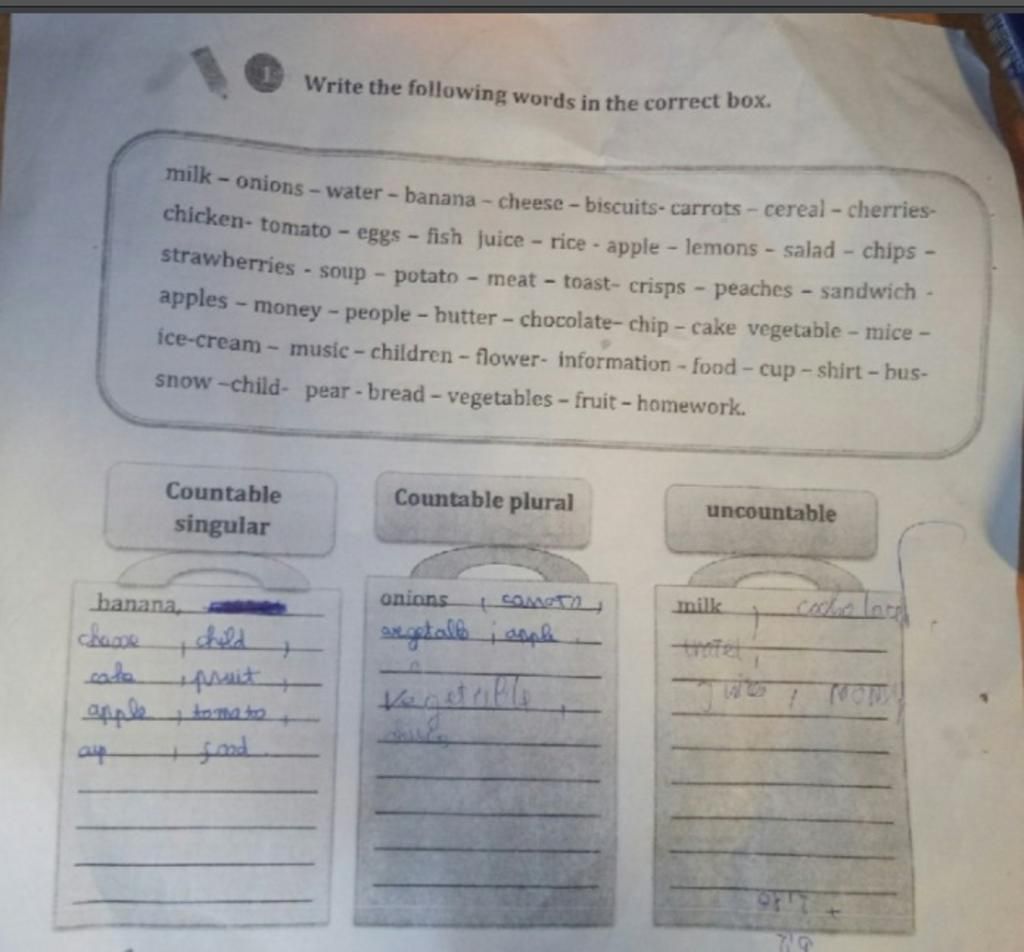 1 Write the following words in the correct box.
milk – onions – water – banana – cheese – biscuits- carrots – cereal – cherries-
chicken- tomato – eggs – fish juice – rice - apple – lemons – salad – chips –
strawberries - soup – potato – meat – toast- crisps – peaches – sandwich -
apples – money – people – butter – chocolate- chip – cake vegetable – mice –
ice-cream – music – children – flower- information - food – cup – shirt – bus-
snow –child- pear - bread – vegetables – fruit – homework.
Countable
singular
banana,
child ,
cake , fruit ,
apple , tomato ,
food
Countable plural
onions ,
apple
Vegetable ,
uncountable
milk ,